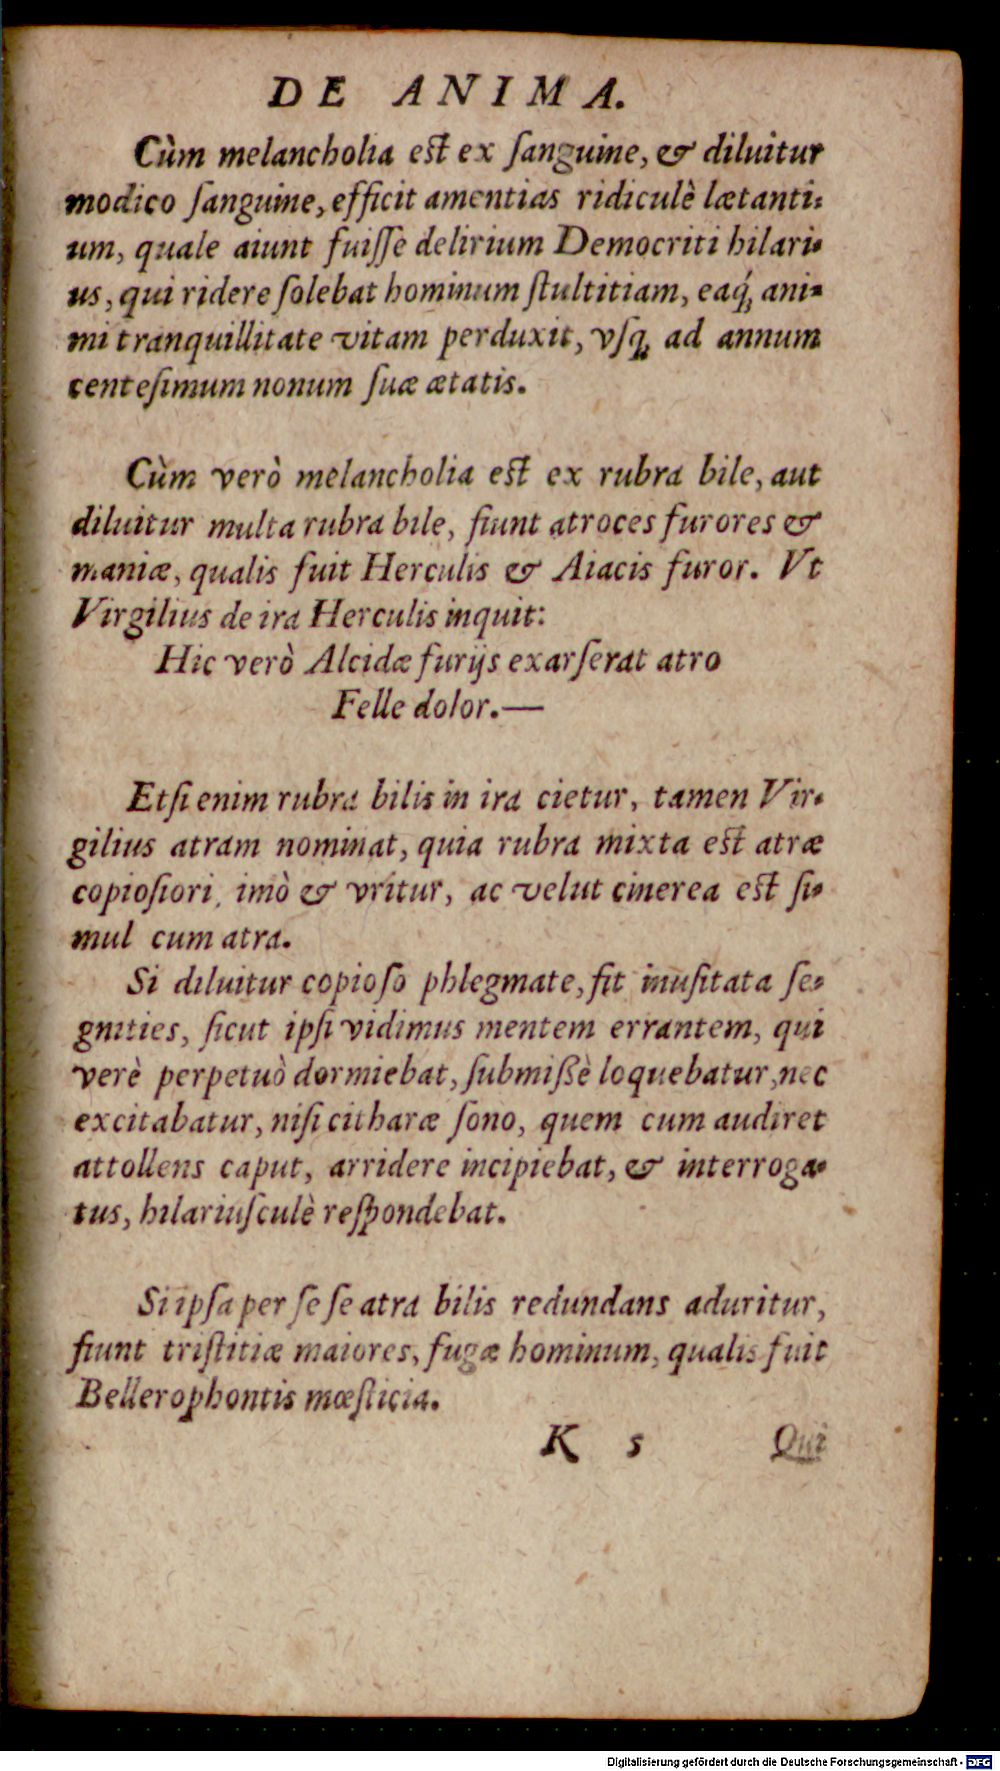 DE ANIMA.
Cùm melancholia est ex ſanguine, & diluitur
modico ſanguine, efficit amentias ridiculè lætanti-
um, quale aiunt fuiſſe delirium Democriti hilari-
us, qui ridere ſolebat hominum ſtultitiam, eaq́; ani-
mi tranquillitate vitam perduxit, vſq; ad annum
centeſimum nonum ſuæ ætatis.
Cùm verò melancholia est ex rubra bile, aut
diluitur multa rubra bile, fiunt atroces furores &
maniæ, qualis fuit Herculis & Aiacis furor. Vt
Virgilius de ira Herculis inquit:
Hic verò Alcidæ furijs exarſerat atro
Felle dolor.—
Etſi enim rubra bilis in ira cietur, tamen Vir-
gilius atram nominat, quia rubra mixta est atræ
copioſiori, imò & vritur, ac velut cinerea est ſi-
mul cum atra.
Si diluitur copioſo phlegmate, fit inuſitata ſe-
gnities, ſicut ipſi vidimus mentem errantem, qui
verè perpetuò dormiebat, ſubmiſſè loquebatur, nec
excitabatur, niſi citharæ ſono, quem cum audiret
attollens caput, arridere incipiebat, & interroga-
tus, hilariuſculè reſpondebat.
Si ipſa per ſe ſe atra bilis redundans aduritur,
fiunt triſtitiæ maiores, fugæ hominum, qualis fuit
Bellerophontis mœſticia.
K 5 Qui
Digitalisierung gefördert durch die Deutsche Forschungsgemeinschaft - DFG